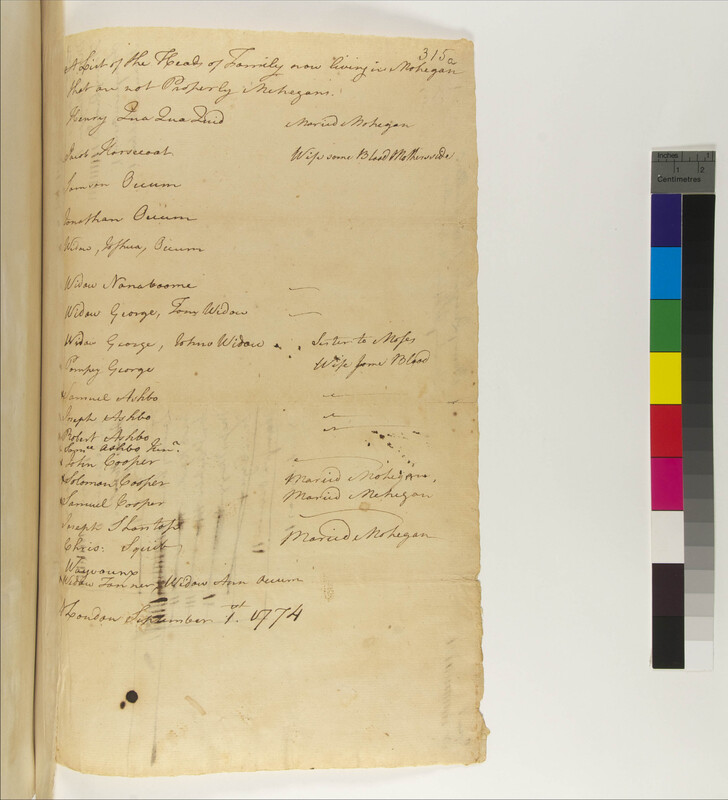 315a
A List of the Heads of Family now living in Mohegan
that are not Properly Mohegans.
Henry Qua Qua Quid Maried Mohegan
Jacob Horsecoat Wife some Blood Mothers side
Samson Occum
Jonathan Occum
Widow, Joshua, Occum
Widow Nanaboome
Widow George, Tony Widow
Widow George, Johns Widow Sister to Moses
Pompey George Wife some Blood
Samuel Ashbo
Joseph Ashbo
Robert Ashbo
Samll Ashbo Junr.
John Cooper
Solomon Cooper Maried Mohegan,
Samuel Cooper Maried Mohegan
Joseph Shantop
Chris: Squib Maried Mohegan
Widow Widow Ann Occum
London September 1st 1774